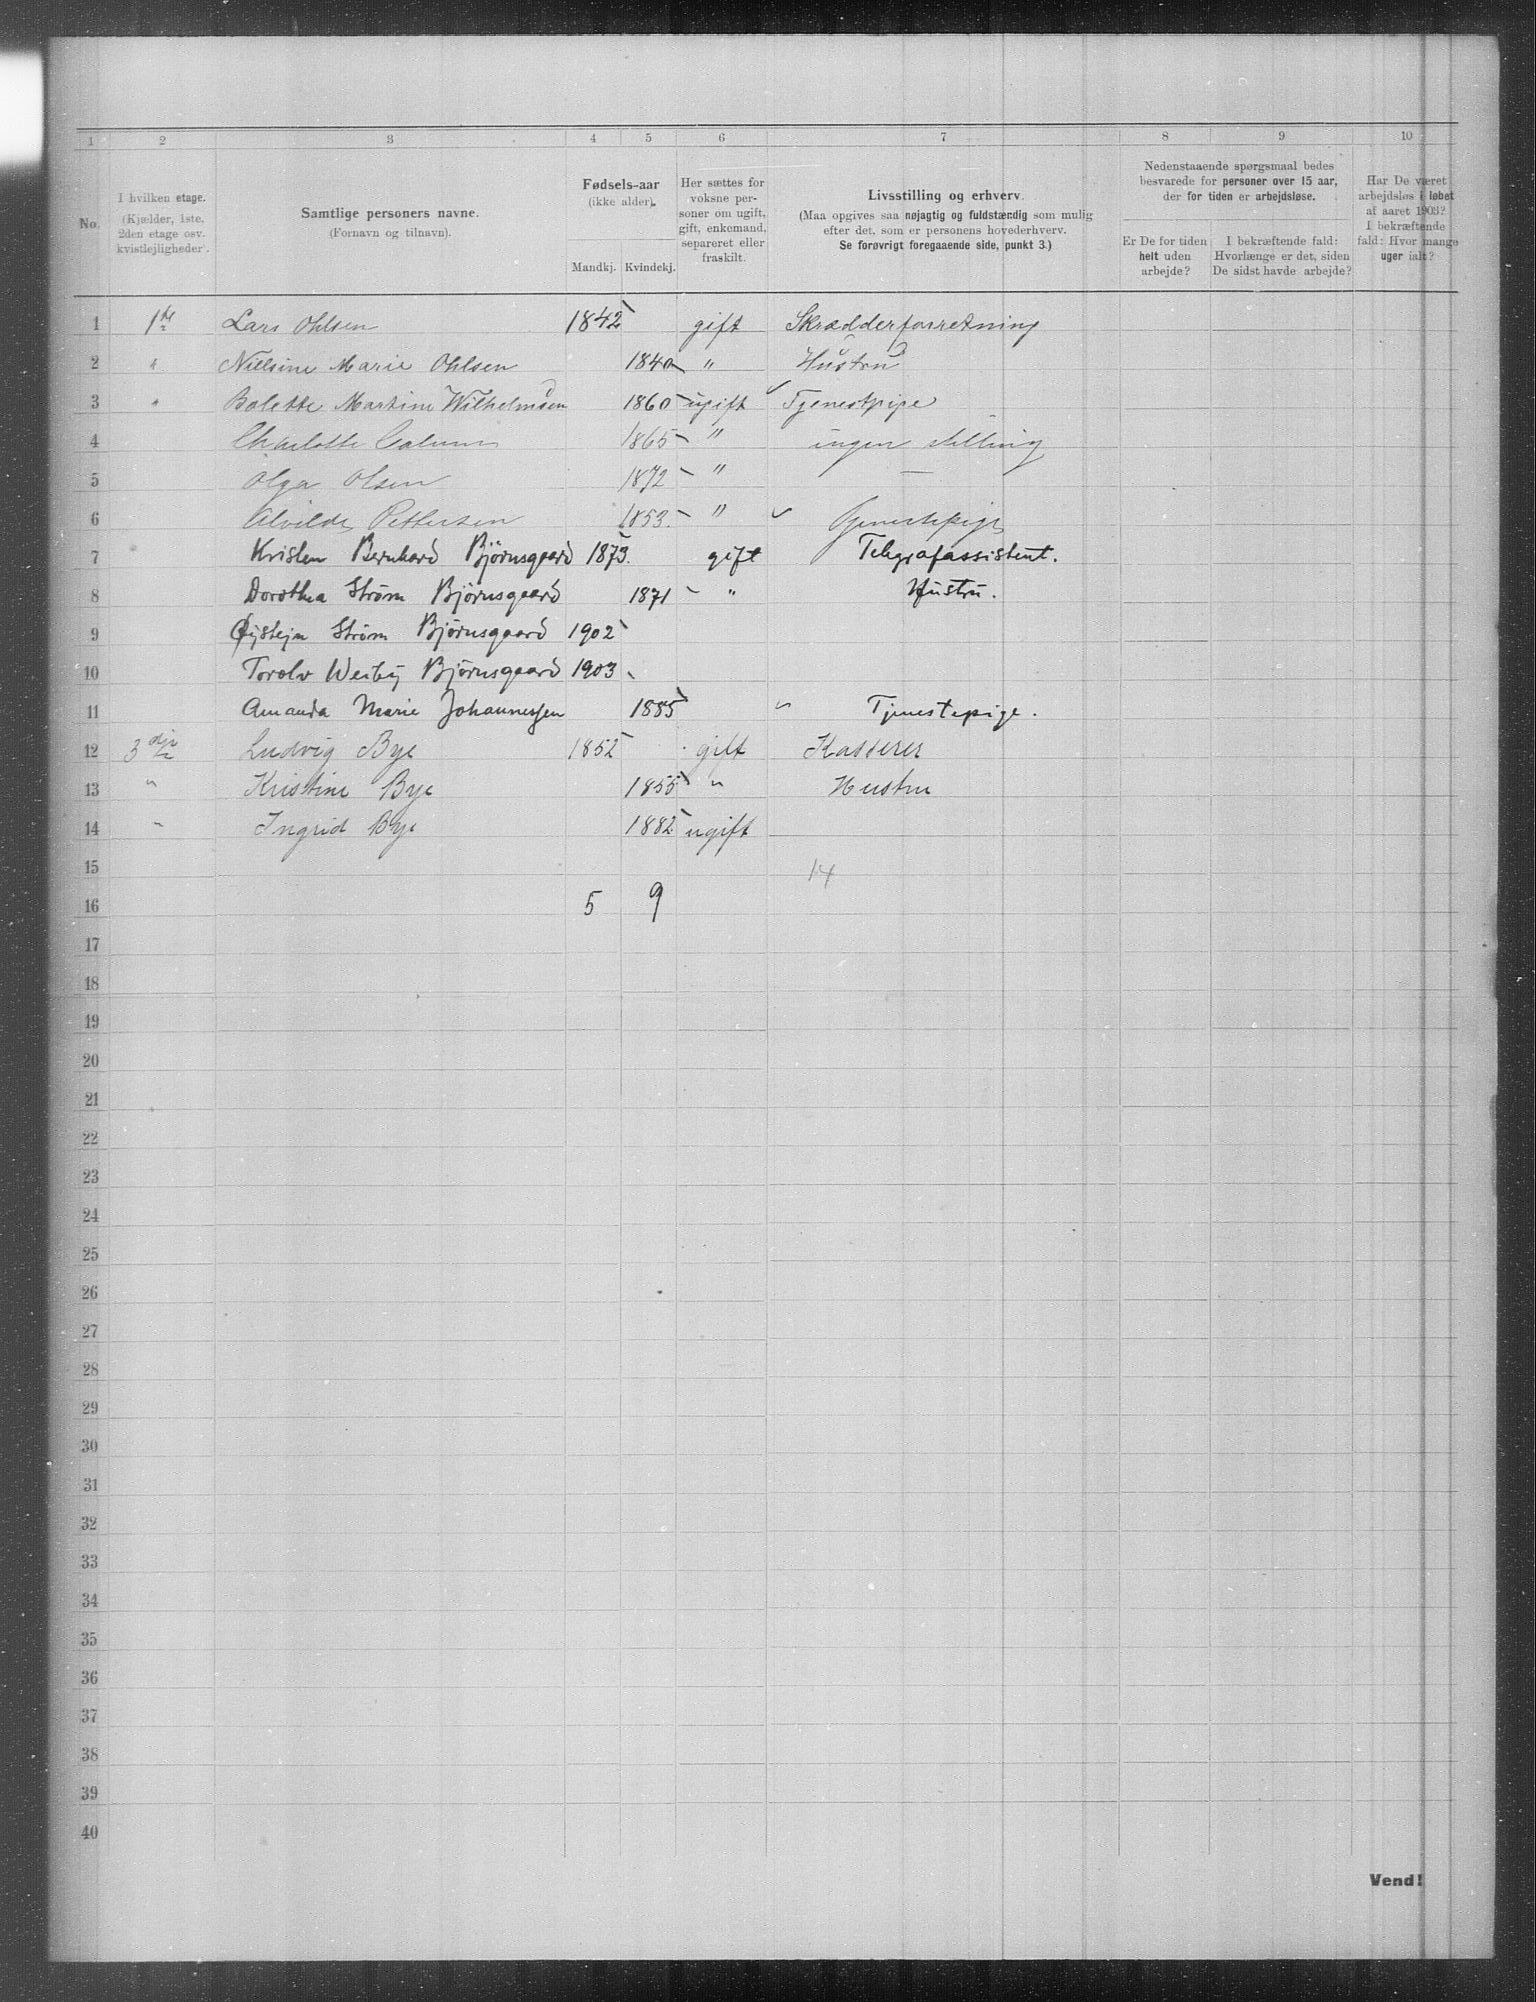 1 2 3 4 5 6 7 8 9 10
No.
I hvilken etage.
(Kjælder, 1ste,
2den etage osv.
kvistlejligheder).
Samtlige personers navne.
(Fornavn og tilnavn).
Fødsels-aar
(ikke alder).
Mandkj. Kvindekj.
Her sættes for
voksne per-
soner om ugift,
gift, enkemand,
separeret eller
fraskilt.
Livsstilling og erhverv.
(Maa opgives saa nøjagtig og fuldstændig som mulig
efter det, som er personens hovederhverv.
Se forøvrigt foregaaende side, punkt 3.)
Nedenstaaende spørgsmaal bedes
besvarede for personer over 15 aar,
der for tiden er arbejdsløse.
Er De for tiden
helt uden
arbejde?
I bekræftende fald:
Hvorlænge er det, siden
De sidst havde arbejde?
Har De været
arbejdsløs i løbet
af aaret 1903?
I bekræftende
fald: Hvor mange
uger ialt?
1 1ste Lars Ohlsen 1842 gift Skrædderforretning
2 " Nielsine Marie Ohlsen 1840 " Hustru
3 " Bolette Martine Wilhelmsen 1860 ugift Tjenestpipe
4 Charlotte 1865 " ingen stilling
5 Olga Olsen 1872 " —
6 Alvilde Pettersen 1853. " Tjenestepige
7 Kristen Bernhard Björnsgaard 1873. gift Telegrafassistent.
8 Dorothea Strøm Björnsgaard 1871 " Hustru.
9 Øjstejn Strøm Björnsgaard 1902
10 Torolv Wesby Björnsgaard 1903
11 Amanda Marie Johannessen 1885 Tjenestepige.
12 3dje Ludvig Bye 1852 gift Kasserer
13 " Kristine Bye 1855 " Hustru
14 " Ingrid Bye 1882 ugift
15 14
16 5 9
17
18
19
20
21
22
23
24
25
26
27
28
29
30
31
32
33
34
35
36
37
38
39
40
Vend!